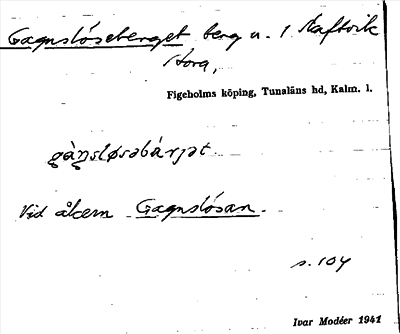 Gagnslöseberget berg u. 1 Kaftvik
Stora,
Figeholms köping, Tunaläns hd, Kalm. l.
gàŋsløsəbárjət
Vid åkern Gagnslösan.
s. 104
Ivar Modéer 1941